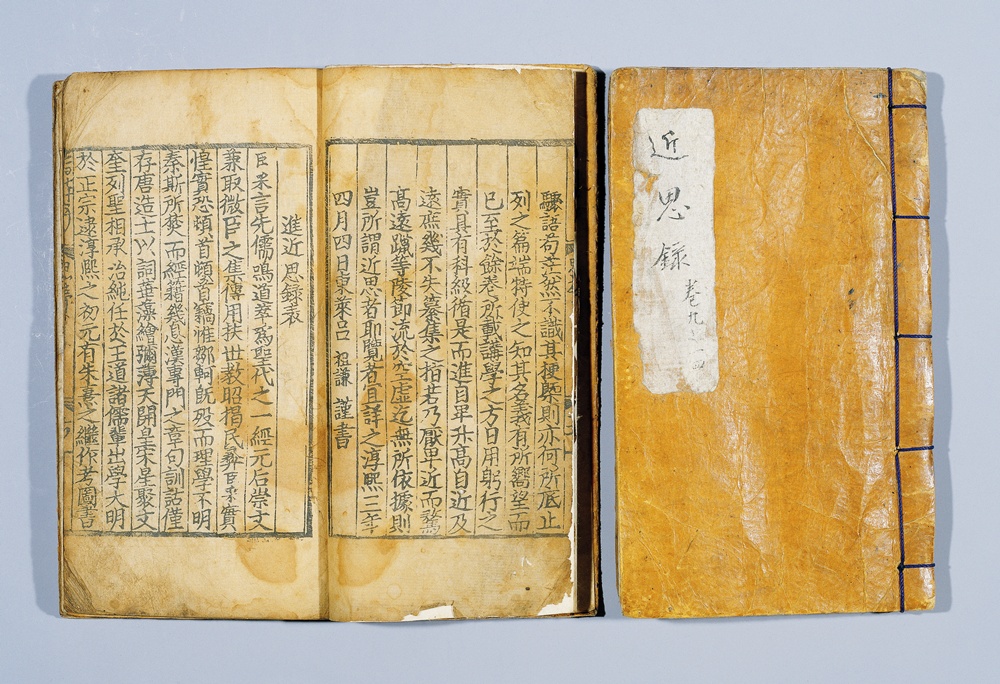 近思錄
卷九之十四
驟語苟茫然不識其梗槩則亦何所底止
列之篇端特使之知其名義有所嚮望而
已至於餘卷所載講學之方日用躬行之
實具有科級循是而進自卑升高自近及
遠庶幾不失纂集之指若乃厭卑近而騖
高遠躐等陵節流於空虛迄無所依據則
豈所謂近思者耶覽者宜詳之淳熙三年
四月四日東萊呂祖謙謹書
進近思錄表
臣采言先儒鳴道萃爲聖代之一經元后崇文
兼取微臣之集傳用扶世敎昭揭民彝臣采實
惶實恐頓首頓首竊惟鄒軻旣歿而理學不明
秦斯所焚而經籍幾息漢專門之章句訓詁僅
存唐造士以詞華藻繪彌薄天開皇宋星聚文
奎列聖相承治純任於王道諸儒輩出學大明
於正宗逮淳熙之初元有朱熹之繼作考圖書